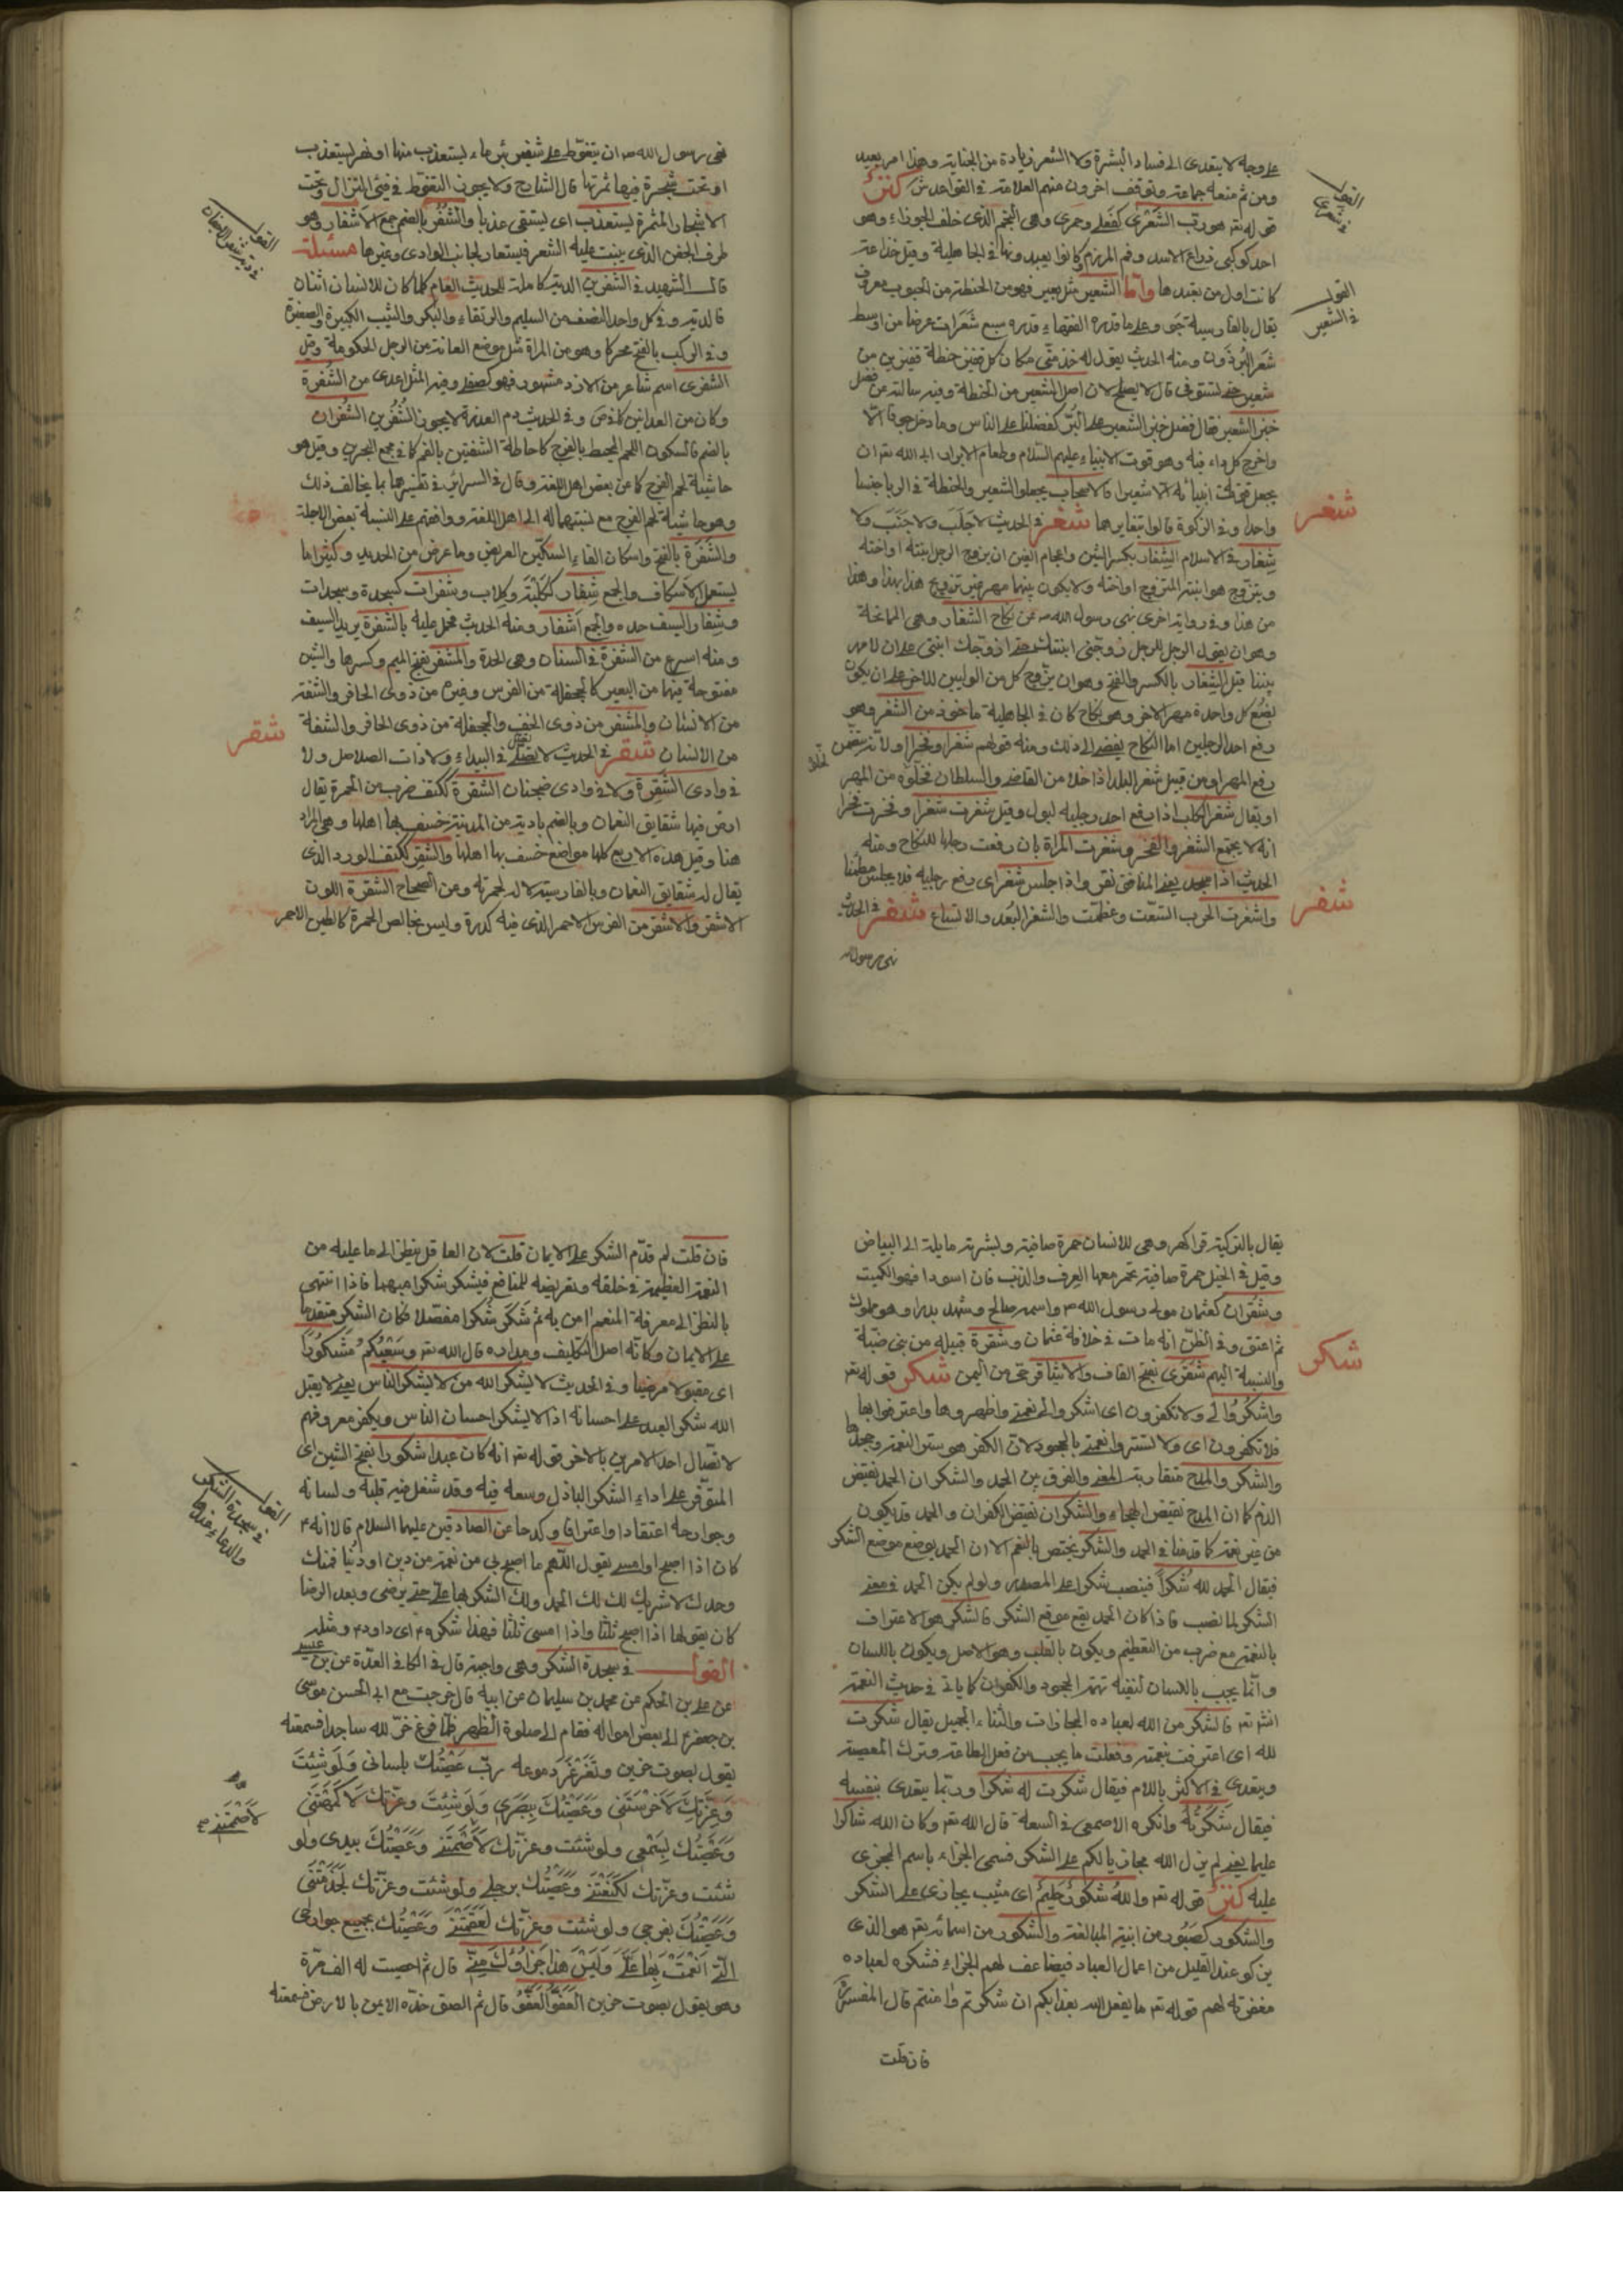 على وجه لا يتعدى الى فساد البشرة ولا الشعر زيادة من الجناية وهذا امر بعيد
ومن ثم منعه جماعة وتوقف اخرون منهم العلامة في القواعد ش كنز
قوله تعم هو رب الشعرى كفعلى وحمرى وهي النجم الذى خلف الجوزاء وهو
احد كوكبي ذراع الاسد وقم المرزم وكانوا يعبدونها في الجاهلية وقيل خزاعة
كانت اول من يعبدها واما الشعير مثل بعير فهو من الحنطة من الحبوب معروف
يقال بالفارسية جو وعلى ما قدره الفقهاء قدره سبع شعرات عرضا من اوسط
شعر البرذون ومنه الحديث يقول له خذ منى مكان كل قفيز حنطة قفيزين من
شعير حتى لتستوفى قال لا يصلح لان اصل الشعير من الحنطة وفيه سالته عن فضل
خبز الشعير فقال فضل خبز الشعير على البر كفضلنا على الناس وما دخل جوفا الا
واخرج كل داء فيه وهو قوت الانبياء عليهم السلام وطعام الابرار ابى الله تعم ان
يجعل قوت انبيائه الا شعيرا والاصحاب يجعلوا الشعير والحنطة في الربا جنسا
واحدا وفي الزكوة قالوا بتغايرهما شغر في الحديث لا جلب ولا جنب ولا
شغار في الاسلام الشغار بكسر الشين واعجام الغين ان يزوج الرجل ابنته او اخته
ويتزوج هو ابنة المتزوج او اخته ولا يكون بينهما مهر غير تزويج هذا بهذا وهذا
من هذا وفي رواية اخرى نهى رسول الله ص عن نكاح الشغار وهى الممانحة
وهو ان يقول الرجل للرجل زوجنى ابنتك حتى ازوجك ابنتى على ان لا مهر
بيننا قيل الشغار بالكسر والفتح وهو ان يزوج كل من الوليين للاخر على ان يكون
بضع كل واحدة مهر الاخر وهو نكاح كان في الجاهلية ماخوذ من الشغر وهو
رفع احد الرجلين اما النكاح يفضى الى ذلك ومنه قولهم شغرا وفخرا او لانه يتضمن
رفع المهر او من قبيل شغر البلد اذا خلا من القاضى والسلطان فخلوه من المهر
او يقال شغر الكلب اذا رفع احد رجليه ليبول وقيل شغرت شغرا وفخرت فخرا
انه لا يجتمع الشغر والفخر وشغرت المراة بان رفعت رجلها للنكاح ومنه
الحديث اذا سجد يعنى المنافق نقر واذا جلس شغر اى رفع رجليه فلا يجلس مطمئنا
واشغرت الحرب اتسعت وعظمت والشغر البعد والاتساع شفر في الحديث
نهى رسول الله
القول في الشعرى
القول في الشعير
شغر
شفر
نهى رسول الله ص ان يتغوط على شفير بئر ماء يستعذب منها او نهر يستعذب
او تحت شجرة فيها ثمرتها قال الشارح ولا يجوز التغوط في فيئ النزال وتحت
الاشجار المثمرة يستعذب اى يستقى عذبا والشفر بالضم جمع الاشفار وهو
طرف الجفن الذى ينبت عليه الشعر فيستعار لجانب الوادى وغيرها مسئلة
قال الشهيد في الشفرين الدية كاملة للحديث العام كلما كان للانسان اثنان
فالدية وفي كل واحد النصف من السليم والرتقاء والبكر والثيب الكبيرة والصغيرة
وفي الركب بالفتح محركا وهو من المراة مثل موضع العانة من الرجل الحكومة وقيل
الشنفرى اسم شاعر من الازد مشهور فهو كصفى وفيه المثل اعدى من الشنفرة
وكان من العدائين كما في ص وفي الحديث دم العذرة لا يجوز الشفرين الشفران
بالضم فالسكون اللحم المحيط بالفرج كاحاطة الشفتين بالفم كما في مجمع البحرين وقيل هو
حاشية لحم الفرج كما عن بعض اهل اللغة وقال في السرائر في تفسيرهما بما يخالف ذلك
وهو حاشية لحم الفرج مع نسبتهما له الى اهل اللغة ووافقهم على النسبة بعض الاجلة
والشفرة بالفتح واسكان الفاء السكين العريض وما عرض من الحديد وكثيرا ما
يستعمل الاسكاف والجمع شفار ككلبة وكلاب وشفرات كسجدة وسجدات
وشفار السيف حده والجمع اشفار ومنه الحديث فحمل عليه بالشفرة يريد السيف
ومنه اسرع من الشفرة في السنان وهى الحدة والمشفر بفتح الميم وكسرها والشين
مفتوحة فيها من البعير كالجحفلة من الفرس وغيره من ذوى الحافر والشفة
من الانسان والمشفر من ذوى الخف والجحفلة من ذوى الحافر والشفة
من الانسان شقر في الحديث لا تصلى في البيداء ولا ذات الصلاصل ولا
في وادى الشقرة ولا في وادى ضجنان الشقرة ككتف ضرب من الحمرة يقال
ارض فيها شقايق النعمان وبالضم بادية من المدينة خسف بها اهلها وهى المراد
هنا وقيل هذه الاربع كلها مواضع خسف بها اهلها والشقر ككتف الورد الذى
يقال له شقايق النعمان وبالفارسية لاله لحمرته وعن الصحاح الشقرة اللون
الاشقر والاشقر من الفرس الاحمر الذى فيه كدرة وليس بخالص الحمرة كالطين الاحمر
القول في دية شفر الاجفان
شقر
يقال بالتركية قراكهر وهى للانسان حمرة صافية وبشرته مايلة الى البياض
وقيل في الخيل حمرة صافية تحمر معها العرف والذنب فان اسودا فهو الكميت
وشقران كعثمان مولى رسول الله ص واسمه صالح وشهد بدرا وهو مملوك
ثم اعتق وفي الظن انه مات في خلافة عثمان وشقرة قبيلة من بنى ضبة
والنسبة اليهم شقرى بفتح القاف والاشاقر حى من اليمن شكر قوله تعم
واشكروا لي ولا تكفرون اى اشكروا لي نعمتى واظهروها واعترفوا بها
فلا تكفرون اى ولا تستتروا نعمتى بالجحود لان الكفر هو ستر النعمة وجحدها
والشكر والمدح متقاربة المعنى والفرق بين الحمد والشكر ان الحمد نقيض
الذم كما ان المدح نقيض الهجاء والشكران نقيض الكفران والحمد قد يكون
من غير نعمة كما قدمنا في الحمد والشكر يختص بالنعم الا ان الحمد يوضع موضع الشكر
فيقال الحمد لله شكرا فينصب شكرا على المصدر ولو لم يكن الحمد في معنى
الشكر لما نصب فاذا كان الحمد يقع موقع الشكر فالشكر هو الاعتراف
بالنعمة مع ضرب من التعظيم ويكون بالقلب وهو الاصل ويكون باللسان
وانما يجب باللسان لنفيه تهمة الجحود والكفران كما ياتى في حديث النعمة
انشر تعم فالشكر من الله لعباده المجازات والثناء الجميل يقال شكرت
لله اى اعترفت بنعمته وفعلت ما يجب من فعل الطاعة وترك المعصية
ويتعدى في الاكثر باللام فيقال شكرت له شكرا وربما يتعدى بنفسه
فيقال شكرته وانكره الاصمعى في السعة قال الله تعم وكان الله شاكرا
عليما يعنى لم يزل الله مجازيا لكم على الشكر فسمى الجزاء باسم المجزى
عليه كنز قوله تعم والله شكور حليم اى مثيب يجازى على الشكر
والشكور كصبور من ابنية المبالغة والشكور من اسمائه تعم هو الذى
يزكو عند القليل من اعمال العباد فيضاعف لهم الجزاء فشكره لعباده
مغفرته لهم قوله تعم ما يفعل الله بعذابكم ان شكرتم وامنتم قال المفسرون
فان قلت
شكر
فان قلت لم قدم الشكر على الايمان قلت لان العاقل ينظر الى ما عليه من
النعمة العظيمة في خلقه وتعريضه للمنافع فيشكر شكرا مبهما فاذا انتهى
بالنظر الى معرفة المنعم امن به ثم شكر شكرا مفصلا فكان الشكر متقدما
على الايمان وكانه اصل التكليف ومداره قال الله تعم وسعيكم مشكورا
اى مقبولا مرضيا وفي الحديث لا يشكر الله من لا يشكر الناس يعنى لا يقبل
الله شكر العبد على احسانه اذا لا يشكر احسان الناس ويكفر معروفهم
لاتصال احد الامرين بالاخر قوله تعم انه كان عبدا شكورا بفتح الشين اى
المتوفر على اداء الشكر الباذل وسعه فيه وقد شغل فيه قلبه ولسانه
وجوارحه اعتقادا واعترافا وكدحا عن الصادقين عليهما السلام قالا انه
كان اذا اصبح او امسى يقول اللهم ما اصبح بي من نعمة من دين او دنيا فمنك
وحدك لا شريك لك لك الحمد ولك الشكر بها على حتى ترضى وبعد الرضا
كان يقولها اذا اصبح ثلثا واذا امسى ثلثا فهذا شكره اى داود ومثله
القول في سجدة الشكر وهى واجبة قال في الكافي العدة عن بن عيسى
عن على بن الحكم عن محمد بن سليمان عن ابيه قال خرجت مع ابى الحسن موسى
بن جعفر ع الى بعض امواله فقام الى صلوة الظهر فلما فرغ خر لله ساجدا فسمعته
يقول بصوت حزين وتغرغر دموعه رب عصيتك بلسانى ولو شئت
وعزتك لاخرستنى وعصيتك ببصرى ولو شئت وعزتك لاكمهتنى
وعصيتك بسمعى ولو شئت وعزتك لاصممتنى وعصيتك بيدى ولو
شئت وعزتك لكنعتنى وعصيتك برجلى ولو شئت وعزتك لجذمتنى
وعصيتك بفرجى ولو شئت وعزتك لعقمتنى وعصيتك بجميع جوارحى
التى انعمت بها على وليس هذا جزاؤك منى قال ثم احصيت له الف مرة
وهو يقول بصوت حزين العفو العفو قال ثم الصق خده الايمن بالارض فسمعته
القول في سجدة الشكر والدعاء فيها
لاصممتنى